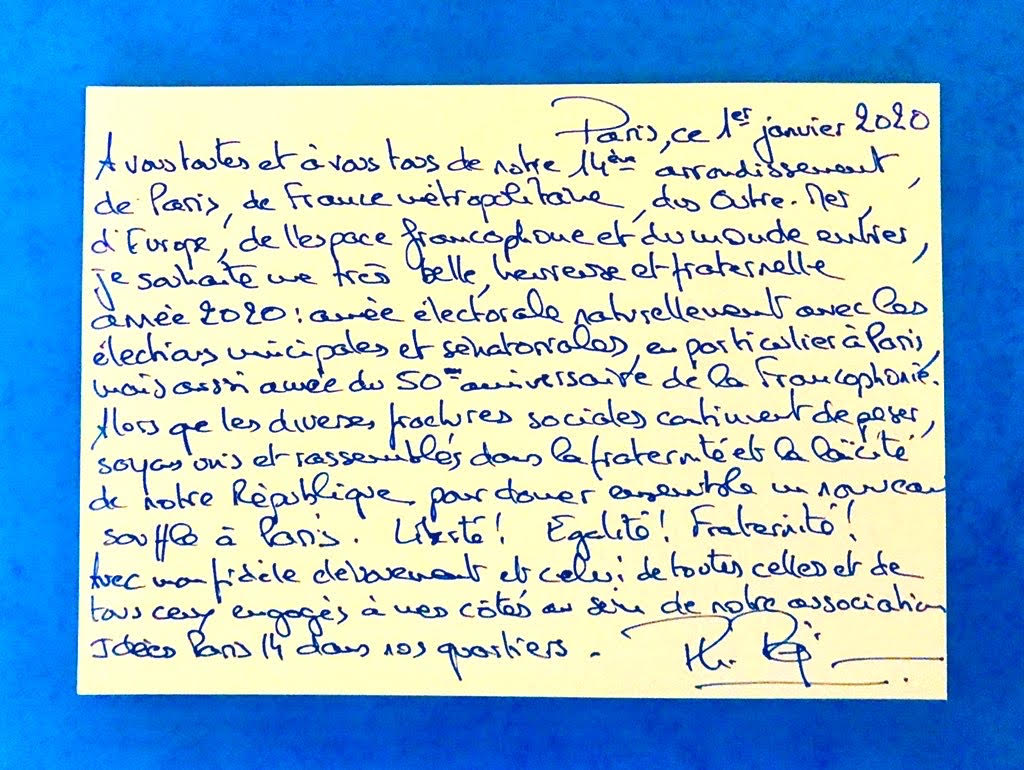 Paris, ce 1er janvier 2020
A vous toutes et à vous tous de notre 14ème arrondissement,
de Paris, de France métropolitaine, des Outre-Mer,
d'Europe, de l'espace francophone et du monde entier,
je souhaite une très belle, heureuse et fraternelle
année 2020 : année électorale naturellement avec les
élections municipales et sénatoriales, en particulier à Paris,
mais aussi année du 50ème anniversaire de la Francophonie.
Alors que les diverses fractures sociales continuent de peser,
soyons unis et rassemblés dans la fraternité et la laïcité
de notre République pour donner ensemble un nouveau
souffle à Paris. Liberté ! Egalité ! Fraternité !
Avec mon fidèle dévouement et celui de toutes celles et de
tous ceux engagés à mes côtés au sein de notre association
Idées Paris 14 dans nos quartiers.